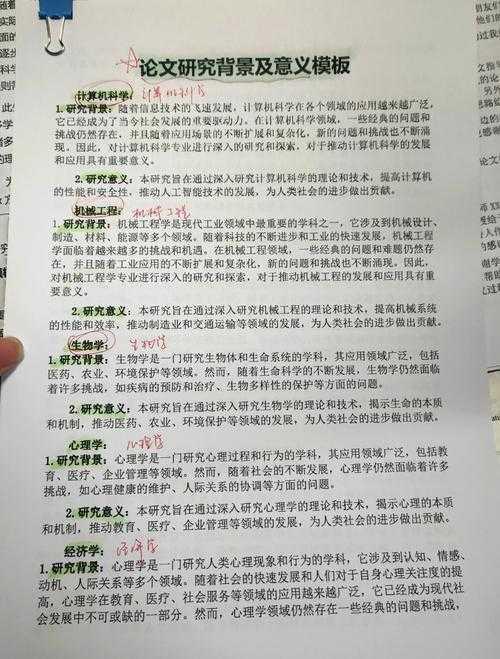 论文研究背景及意义模板
计算机科学: 计算机科学
1.研究背景: 随着信息技术的飞速发展，计算机科学在各个领域的应用越来越广泛，
它已经成为了当今社会发展的重要驱动力。在计算机科学领域，一些经典的问题和
挑战仍然存在，并且随着应用场景的不断扩展和复杂化，新的问题和挑战也不断涌
现。因此，对计算机科学专业进行深入的研究和探索，对于推动计算机科学的发展
和应用具有重要意义。
2.研究意义: 本研究旨在通过深入研究计算机科学的理论和技术，提高计算机
的性能和安全性，推动人工智能技术的发展，为人类社会的进步做出贡献。
机械工程: 机械工程
1.研究背景: 机械工程学是现代工业领域中最重要的学科之一，它涉及到机械设计、
制造、材料、能源等多个领域。随着科技的不断进步和工业的快速发展，机械工程
学面临着越来越多的挑战和机遇。在机械工程领域，一些经典的问题和难题仍然存
在，并且随着工业应用的不断扩展和复杂化，新的问题和挑战也不断涌现。因此，
对机械工程学专业进行深入的研究和探索，对于推动机械工程的发展和应用具有重
要意义。
2.研究意义: 本研究旨在通过深入研究机械工程的理论和技术，提高机械系统
的性能和效率，推动制造业和交通运输等领域的发展，为人类社会的进步做出贡献。
生物学: 生物学
1.研究背景: 生物学是一门研究生物体和生命系统的学科，其应用领域广泛，包括
医药、农业、环境保护等领域。然而，随着生命科学的不断发展，生物学仍然面临
着许多挑战，如疾病的预防和治疗、生物多样性的保护等方面的问题。
2.研究意义: 本研究旨在通过深入研究生物学的理论和技术，揭示生命的本质
和机制，推动医药、农业、环境保护等领域的发展，为人类社会的进步做出贡献。
心理学: 心理学
1.研究背景: 心理学是一门研究心理过程和行为的学科，其应用领域广泛，包括教
育、医疗、企业管理等领域。然而，随着社会的不断发展，心理学仍然面临着许多
挑战，如心理健康的维护、人际关系的协调等方面的问题。
2.研究意义: 本研究旨在通过深入研究心理学的理论和技术，揭示心理的本质
和机制，推动教育、医疗、企业管理等领域的发展，为人类社会的进步做出贡献。
经济学: 经济学
1.研究背景: 心理学是一门研究人类心理现象和行为的学科，它涉及到认知、情感、
动机、人际关系等多个领域。随着社会的快速发展和人们对于自身心理关注度的提
高，心理学在教育、医疗、社会服务等领域的应用越来越广泛，它已经成为现代社
会发展中不可或缺的一部分。然而，心理学领域仍然存在一些经典的问题和挑战，